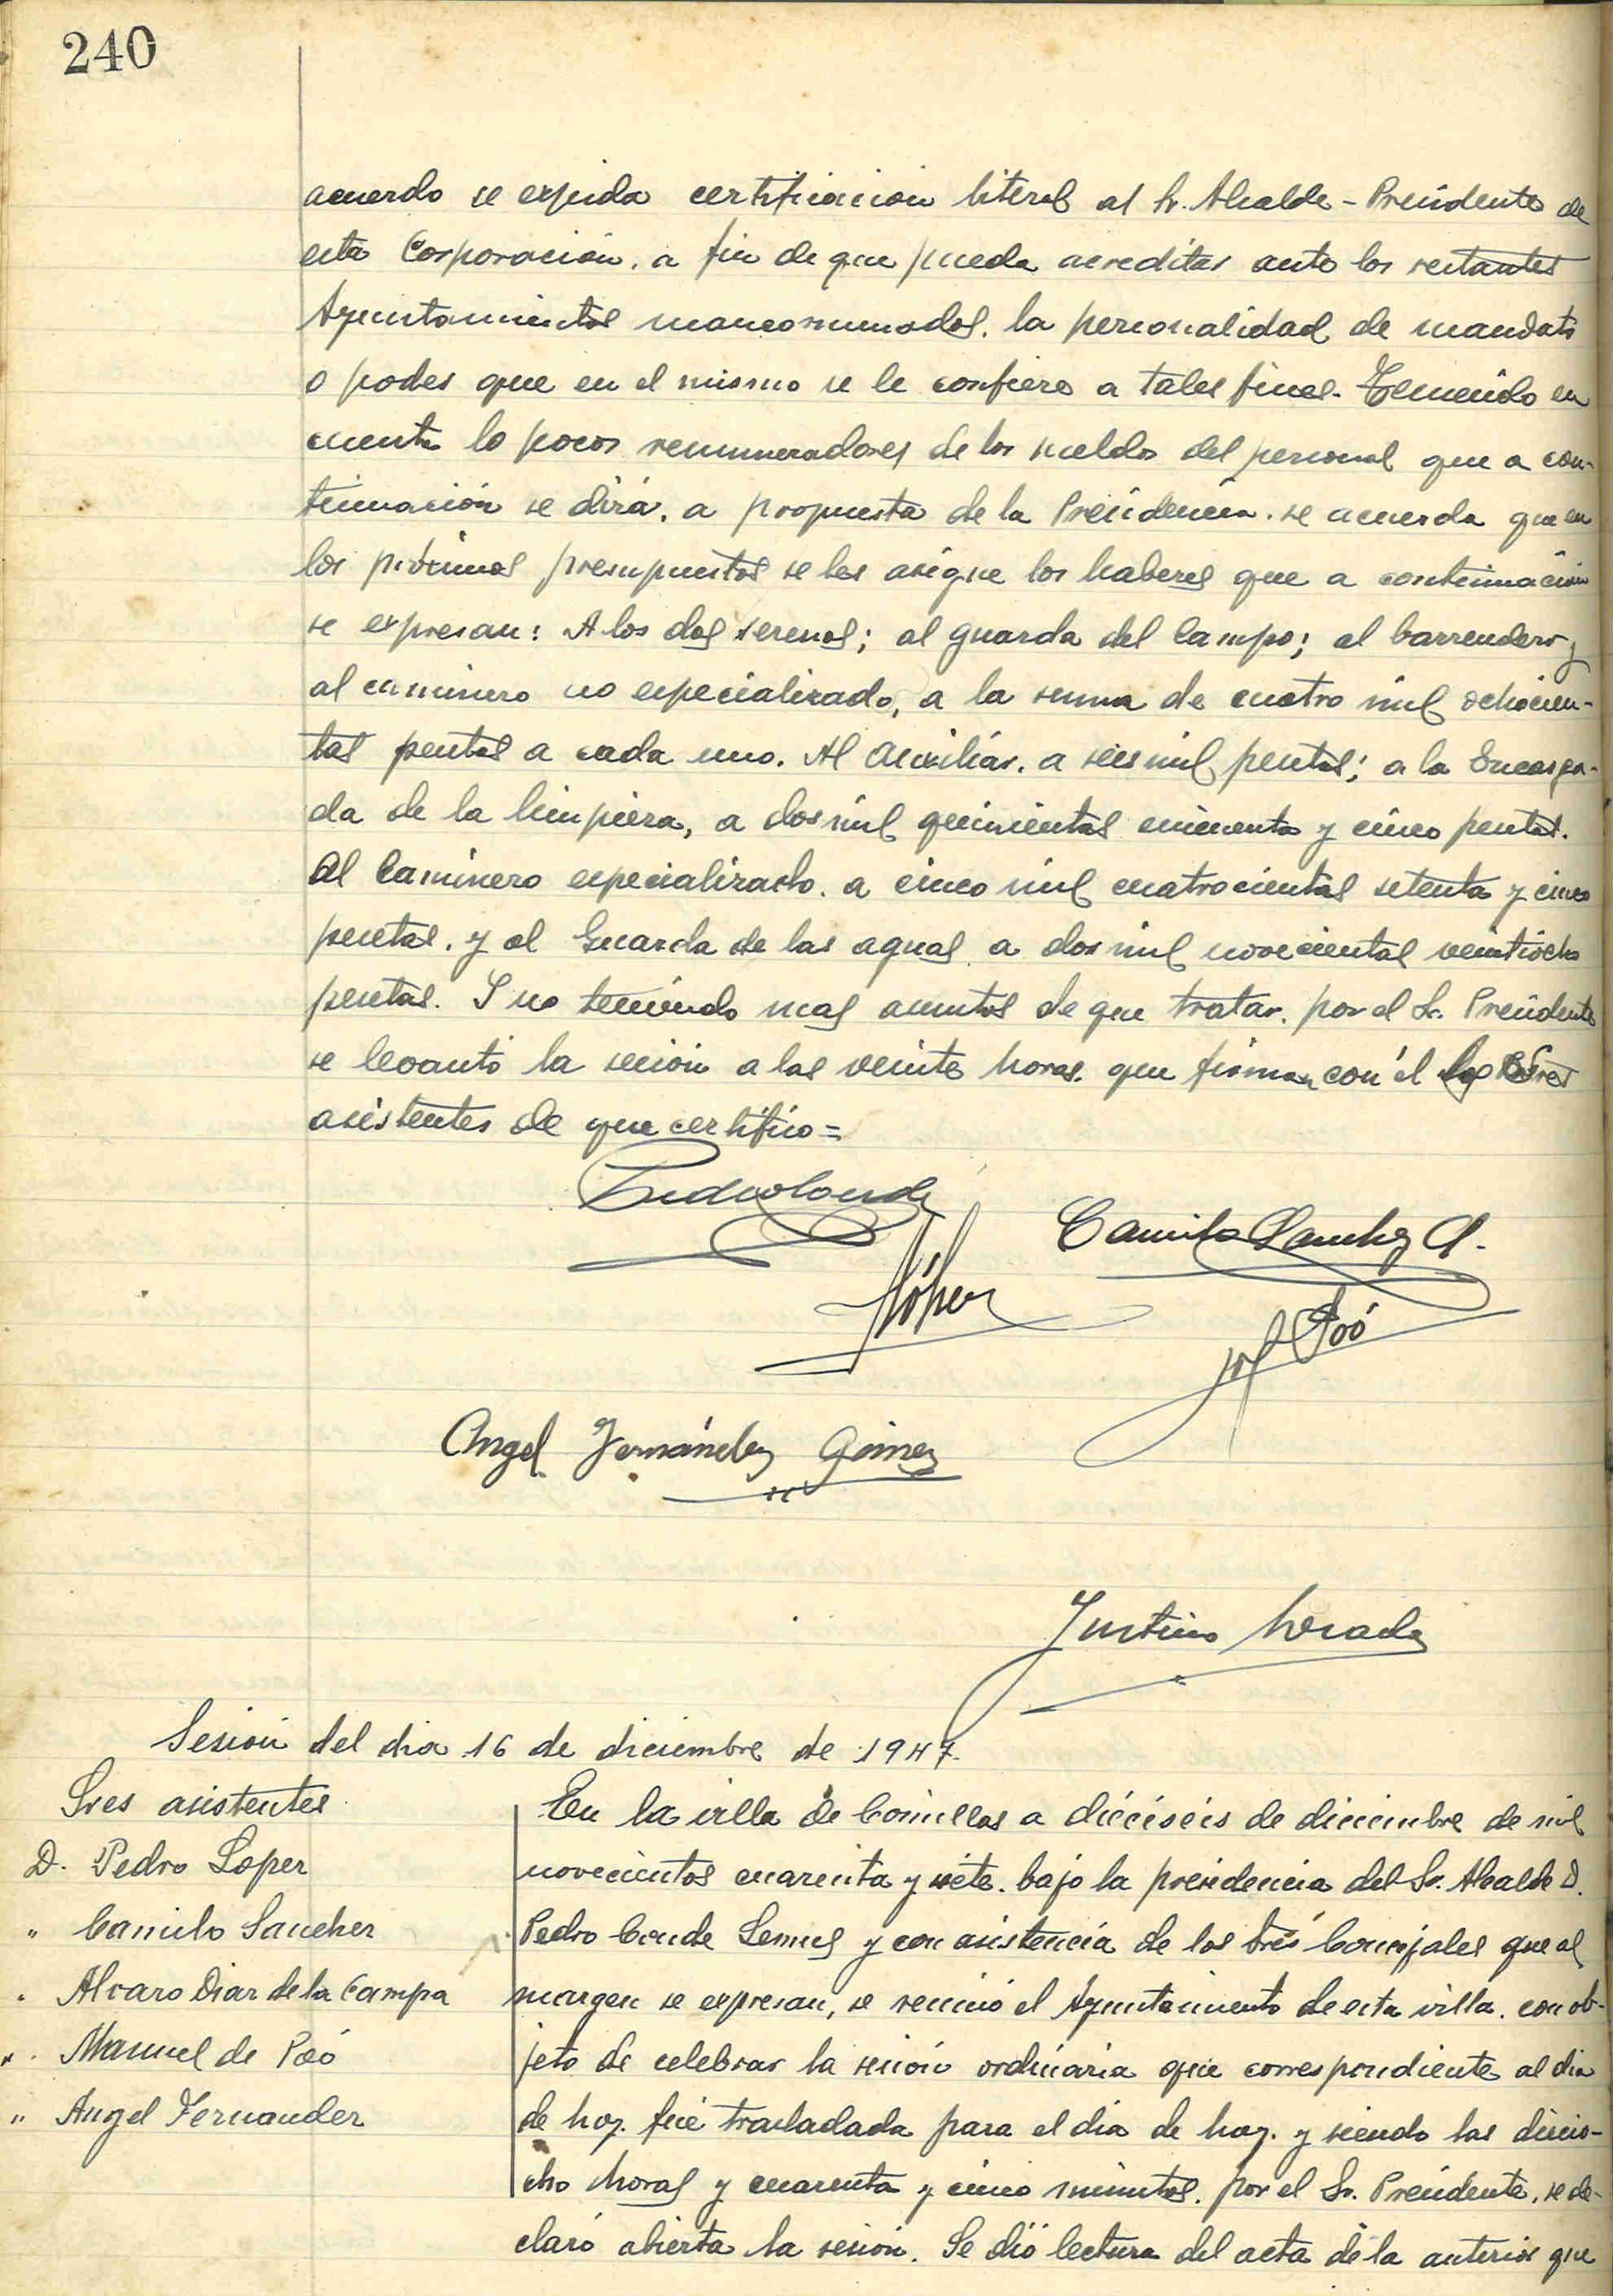 240
acuerdo se expida certificacion literal al Sr. Alcalde-Presidente de
esta Corporación, a fin de que pueda acreditar ante los restantes
Ayuntamientos mancomunados, la personalidad de mandato
o poder que en el mismo se le confiere a tales fines. Teniendo en
cuenta lo pocos remuneradores de los sueldos del personal que a con-
tinuación se dirá, a propuesta de la Presidencia, se acuerda que en
los próximos presupuestos se les asigne los haberes que a continuación
se expresan: A los dos serenos; al guarda del Campo; al barrendero y
al caminero no especializado, a la suma de cuatro mil ochocien-
tas pesetas a cada uno. Al Auxiliar, a seis mil pesetas; a la Encarga-
da de la limpieza, a dos mil quinientas cincuenta y cinco pesetas.
Al Caminero especializado, a cinco mil cuatrocientas setenta y cinco
pesetas, y al Guarda de las aguas a dos mil novecientas veintiocho
pesetas. Y no teniendo mas asuntos de que tratar, por el Sr. Presidente
se levantó la sesión a las veinte horas, que firman con él los Sres
asistentes de que certifico=
Pedro Conde
Camilo Sanchez A.
López
Poó
Angel Fernández Gómez
Justino
Sesión del dia 16 de diciembre de 1947.
Sres asistentes
D. Pedro Lopez
" Camilo Sanchez
" Alvaro Diaz de la Campa
" Manuel de Poó
" Angel Fernandez
En la villa de Comillas a dieciseis de diciembre de mil
novecientos cuarenta y siete, bajo la presidencia del Sr. Alcalde D.
Pedro Conde Lemus y con asistencia de los tres Concejales que al
margen se expresan, se reunió el Ayuntamiento de esta villa, con ob-
jeto de celebrar la sesión ordinaria que correspondiente al dia
de hoy, fué trasladada para el dia de hoy, y siendo las diecio-
cho horas y cuarenta y cinco minutos, por el Sr. Presidente, se de-
claró abierta la sesión. Se dió lectura del acta de la anterior que